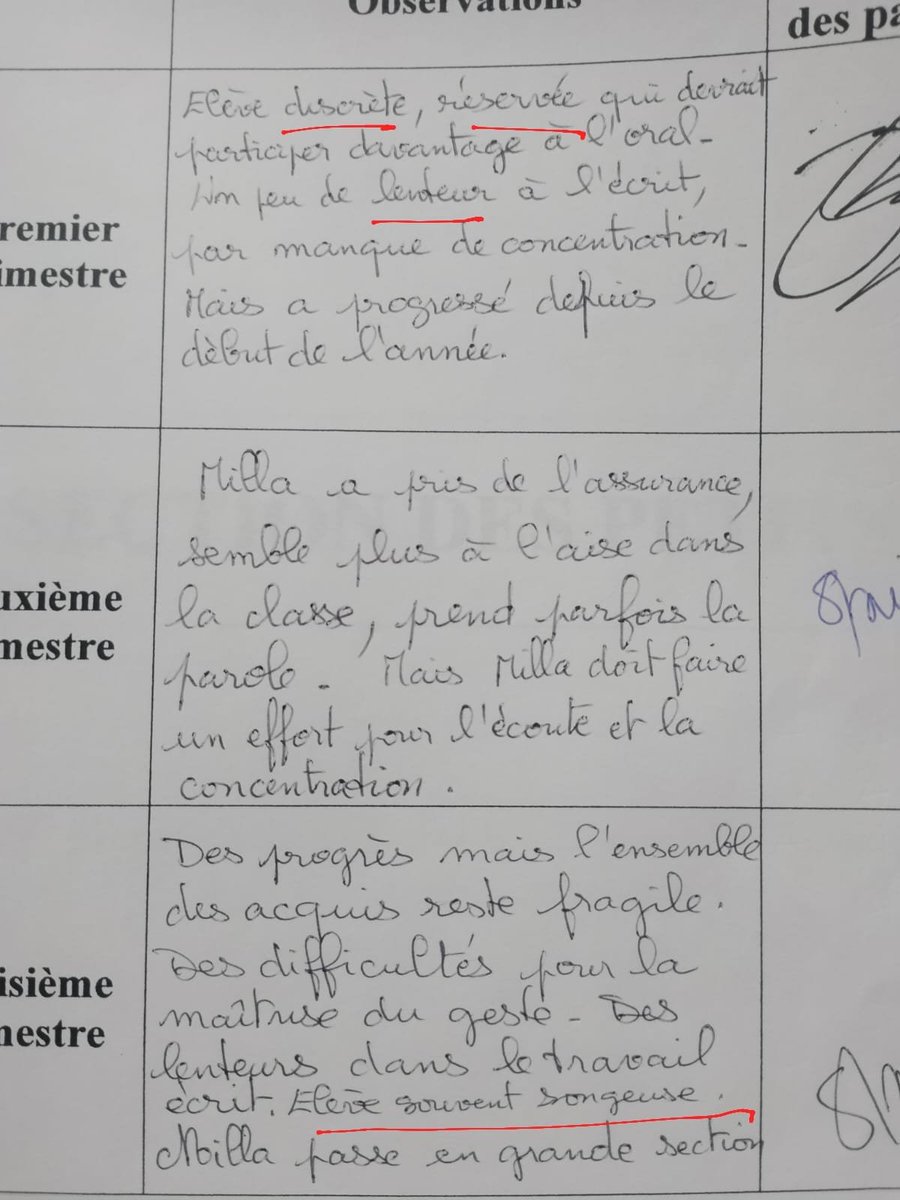 Observations
des pa
remier
imestre
Elève discrète, réservée qui devrait
participer davantage à l'oral-
Un peu de lenteur à l'écrit,
par manque de concentration-
Mais a progressé depuis le
dèbut de l'année.
uxième
mestre
Milla a pris de l'assurance,
semble plus à l'aise dans
la classe, prend parfois la
parole - Mais Milla doit faire
un effort pour l'écoute et la
concentration.
isième
mestre
Des progrès mais l'ensemble
des acquis reste fragile.
Des difficultés pour la
maîtrise du geste - Des
lenteurs dans le travail
écrit. Elève souvent songeuse.
Milla passe en grande section